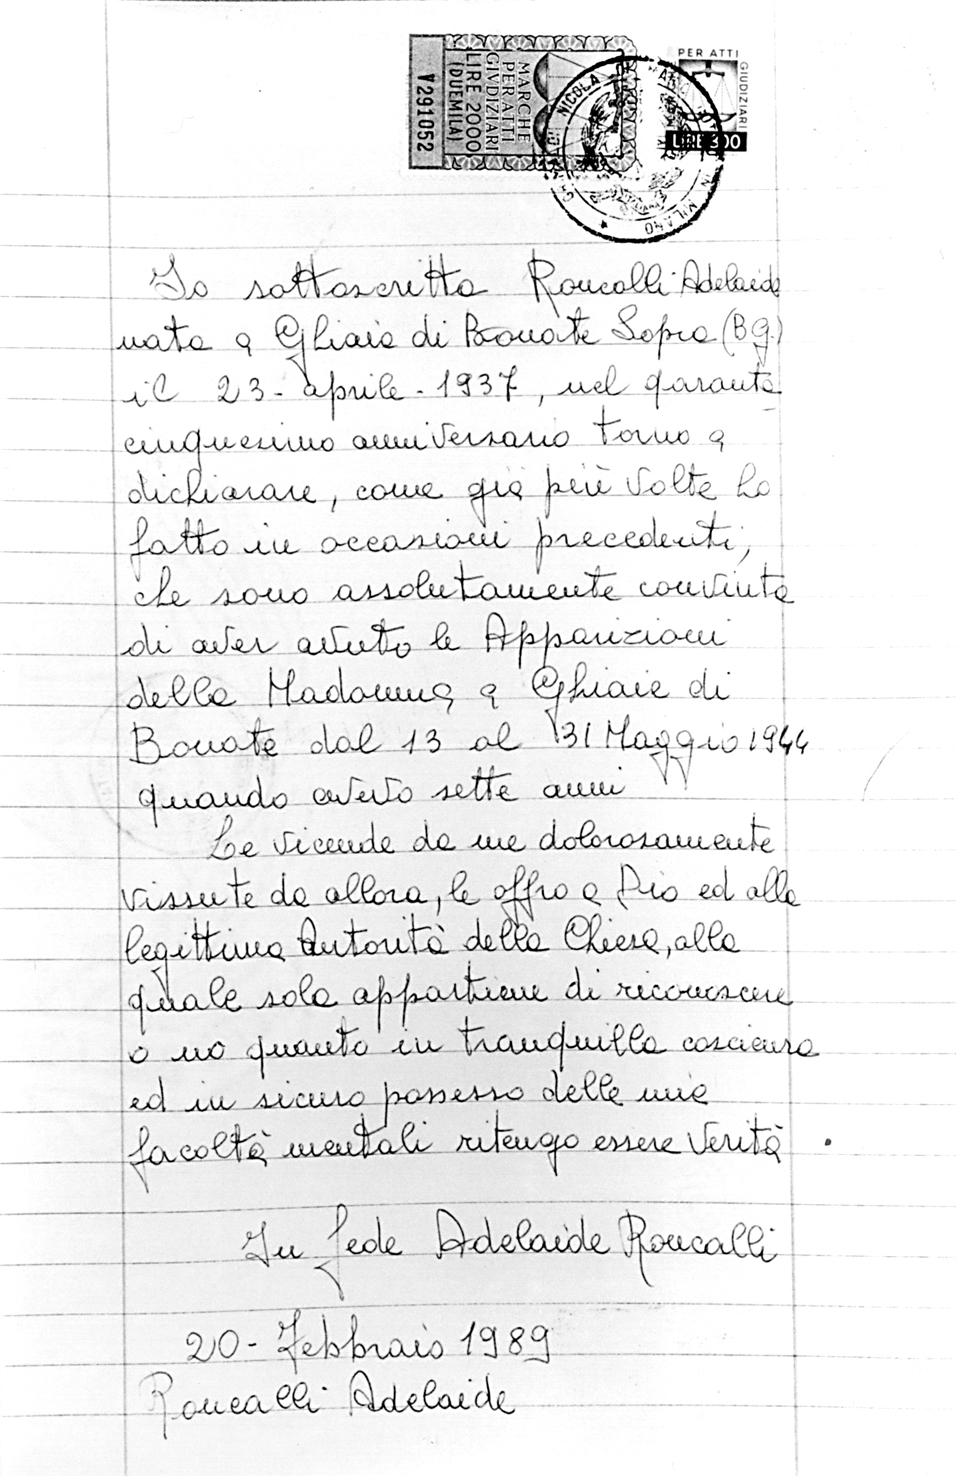 PER ATTI
GIUDIZIARI
LIRE 300
MARCHE
PER ATTI
GIUDIZIARI
LIRE 2000
(DUEMILA)
V291052
NICOLA
MILANO
Io sottoscritta Roncalli Adelaide
nata a Ghiaie di Bonate Sopra (BG.)
il 23 - aprile - 1937, nel quaranta
cinquesimo anniversario torno a
dichiarare, come già più volte ho
fatto in occasioni precedenti,
che sono assolutamente convinta
di aver avuto le Apparizioni
della Madonna a Ghiaie di
Bonate dal 13 al 31 Maggio 1944
quando avevo sette anni
Le vicende da me dolorosamente
vissute da allora, le offro a Dio ed alla
legittima Autorità della Chiesa, alla
quale sola appartiene di riconoscere
o no quanto in tranquilla coscienza
ed in sicuro possesso delle mie
facoltà mentali ritengo essere Verità
In fede Adelaide Roncalli
20 - Febbraio 1989
Roncalli Adelaide